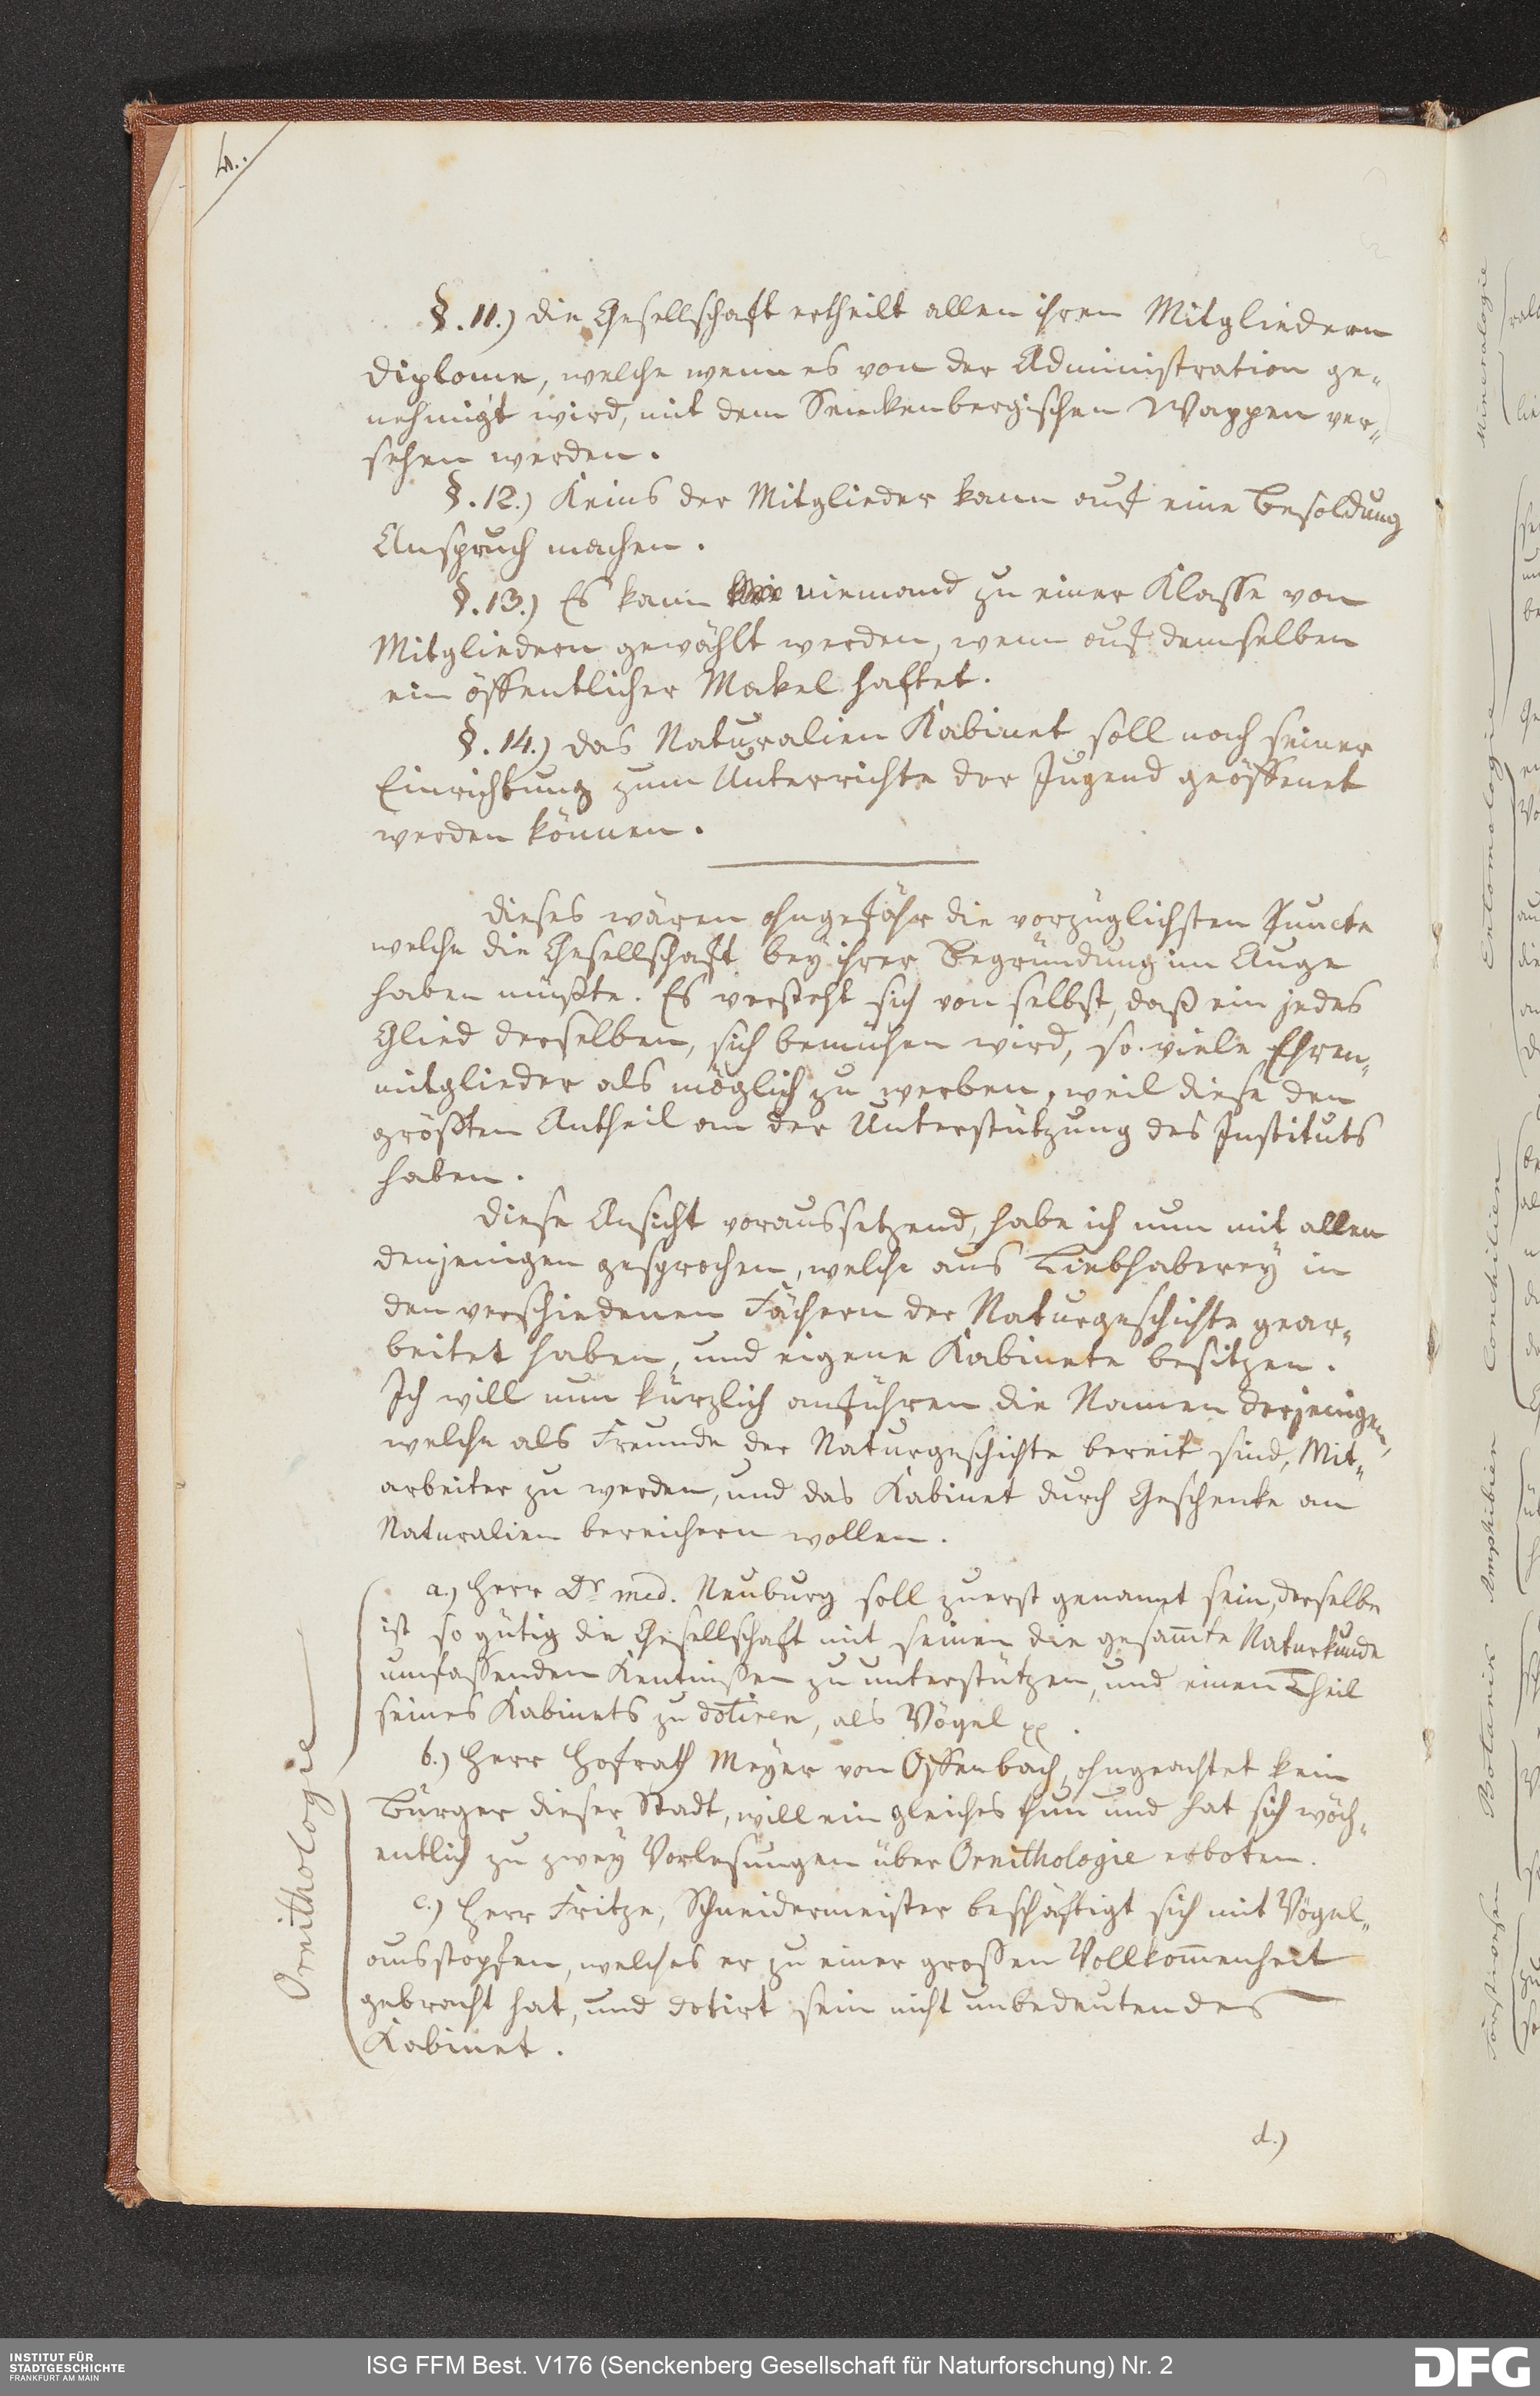 4.
§. 11.) die Gesellschaft ertheilt allen ihren Mitgliedern
Diplome, welche wenn es von der Administration ge-
nehmigt wird, mit dem Senckenbergischen Wappen ver-
sehen werden.
§. 12.) Keins der Mitglieder kann auf eine Besoldung
Anspruch machen.
§. 13.) Es kann niemand zu einer Klasse von
Mitgliedern gewählt werden, wenn auf demselben
ein öffentlicher Makel haftet.
§. 14.) das Naturalien Kabinet soll nach seiner
Einrichtung zum Unterrichte der Jugend geöffenet
werden können.
dieses wären ohngefähr die vorzüglichsten Puncte
welche die Gesellschaft bey ihrer Begründung im Auge
haben müßte. Es versteht sich von selbst, daß ein jedes
Glied derselben, sich bemühen wird, so viele Ehren-
mitglieder als möglich zu werben, weil diese den
größten Antheil an der Unterstützung des Instituts
haben.
diese Ansicht voraussetzend, habe ich nun mit allen
denjenigen gesprochen, welche aus Liebhaberey in
den verschiedenen Fächern der Naturgeschichte gear-
beitet haben, und eigene Kabinete besitzen.
Ich will nun kürzlich anführen die Namen derjenigen,
welche als Freunde der Naturgeschichte bereit sind, Mit-
arbeiter zu werden, und das Kabinet durch Geschenke an
Naturalien bereichern wollen.
a.) Herr Dr med. Neuburg soll zuerst genannt sein, derselbe
ist so gütig die Gesellschaft mit seinen die gesam̄te Naturkunde
umfassenden Kentnißen zu unterstützen, und einen Theil
seines Kabinets zu dotiren, als Vögel pp.
b.) Herr Hofrath Meyer von Offenbach, ohngeachtet kein
Bürger dieser Stadt, will ein gleiches thun und hat sich wöch-
entlich zu zwey Vorlesungen über Ornithologie erboten.
c.) Herr Fritze, Schneidermeister beschäftigt sich mit Vögel-
ausstopfen, welches er zu einer großen Vollkom̄enheit
gebracht hat, und dotirt sein nicht unbedeutendes
Kabinet.
Ornithologie
d.)
Mineralogie
Entomologie
Conchilien
Amphibien
Botanik
Forstwesen
INSTITUT FÜR
STADTGESCHICHTE
FRANKFURT AM MAIN
ISG FFM Best. V176 (Senckenberg Gesellschaft für Naturforschung) Nr. 2
DFG